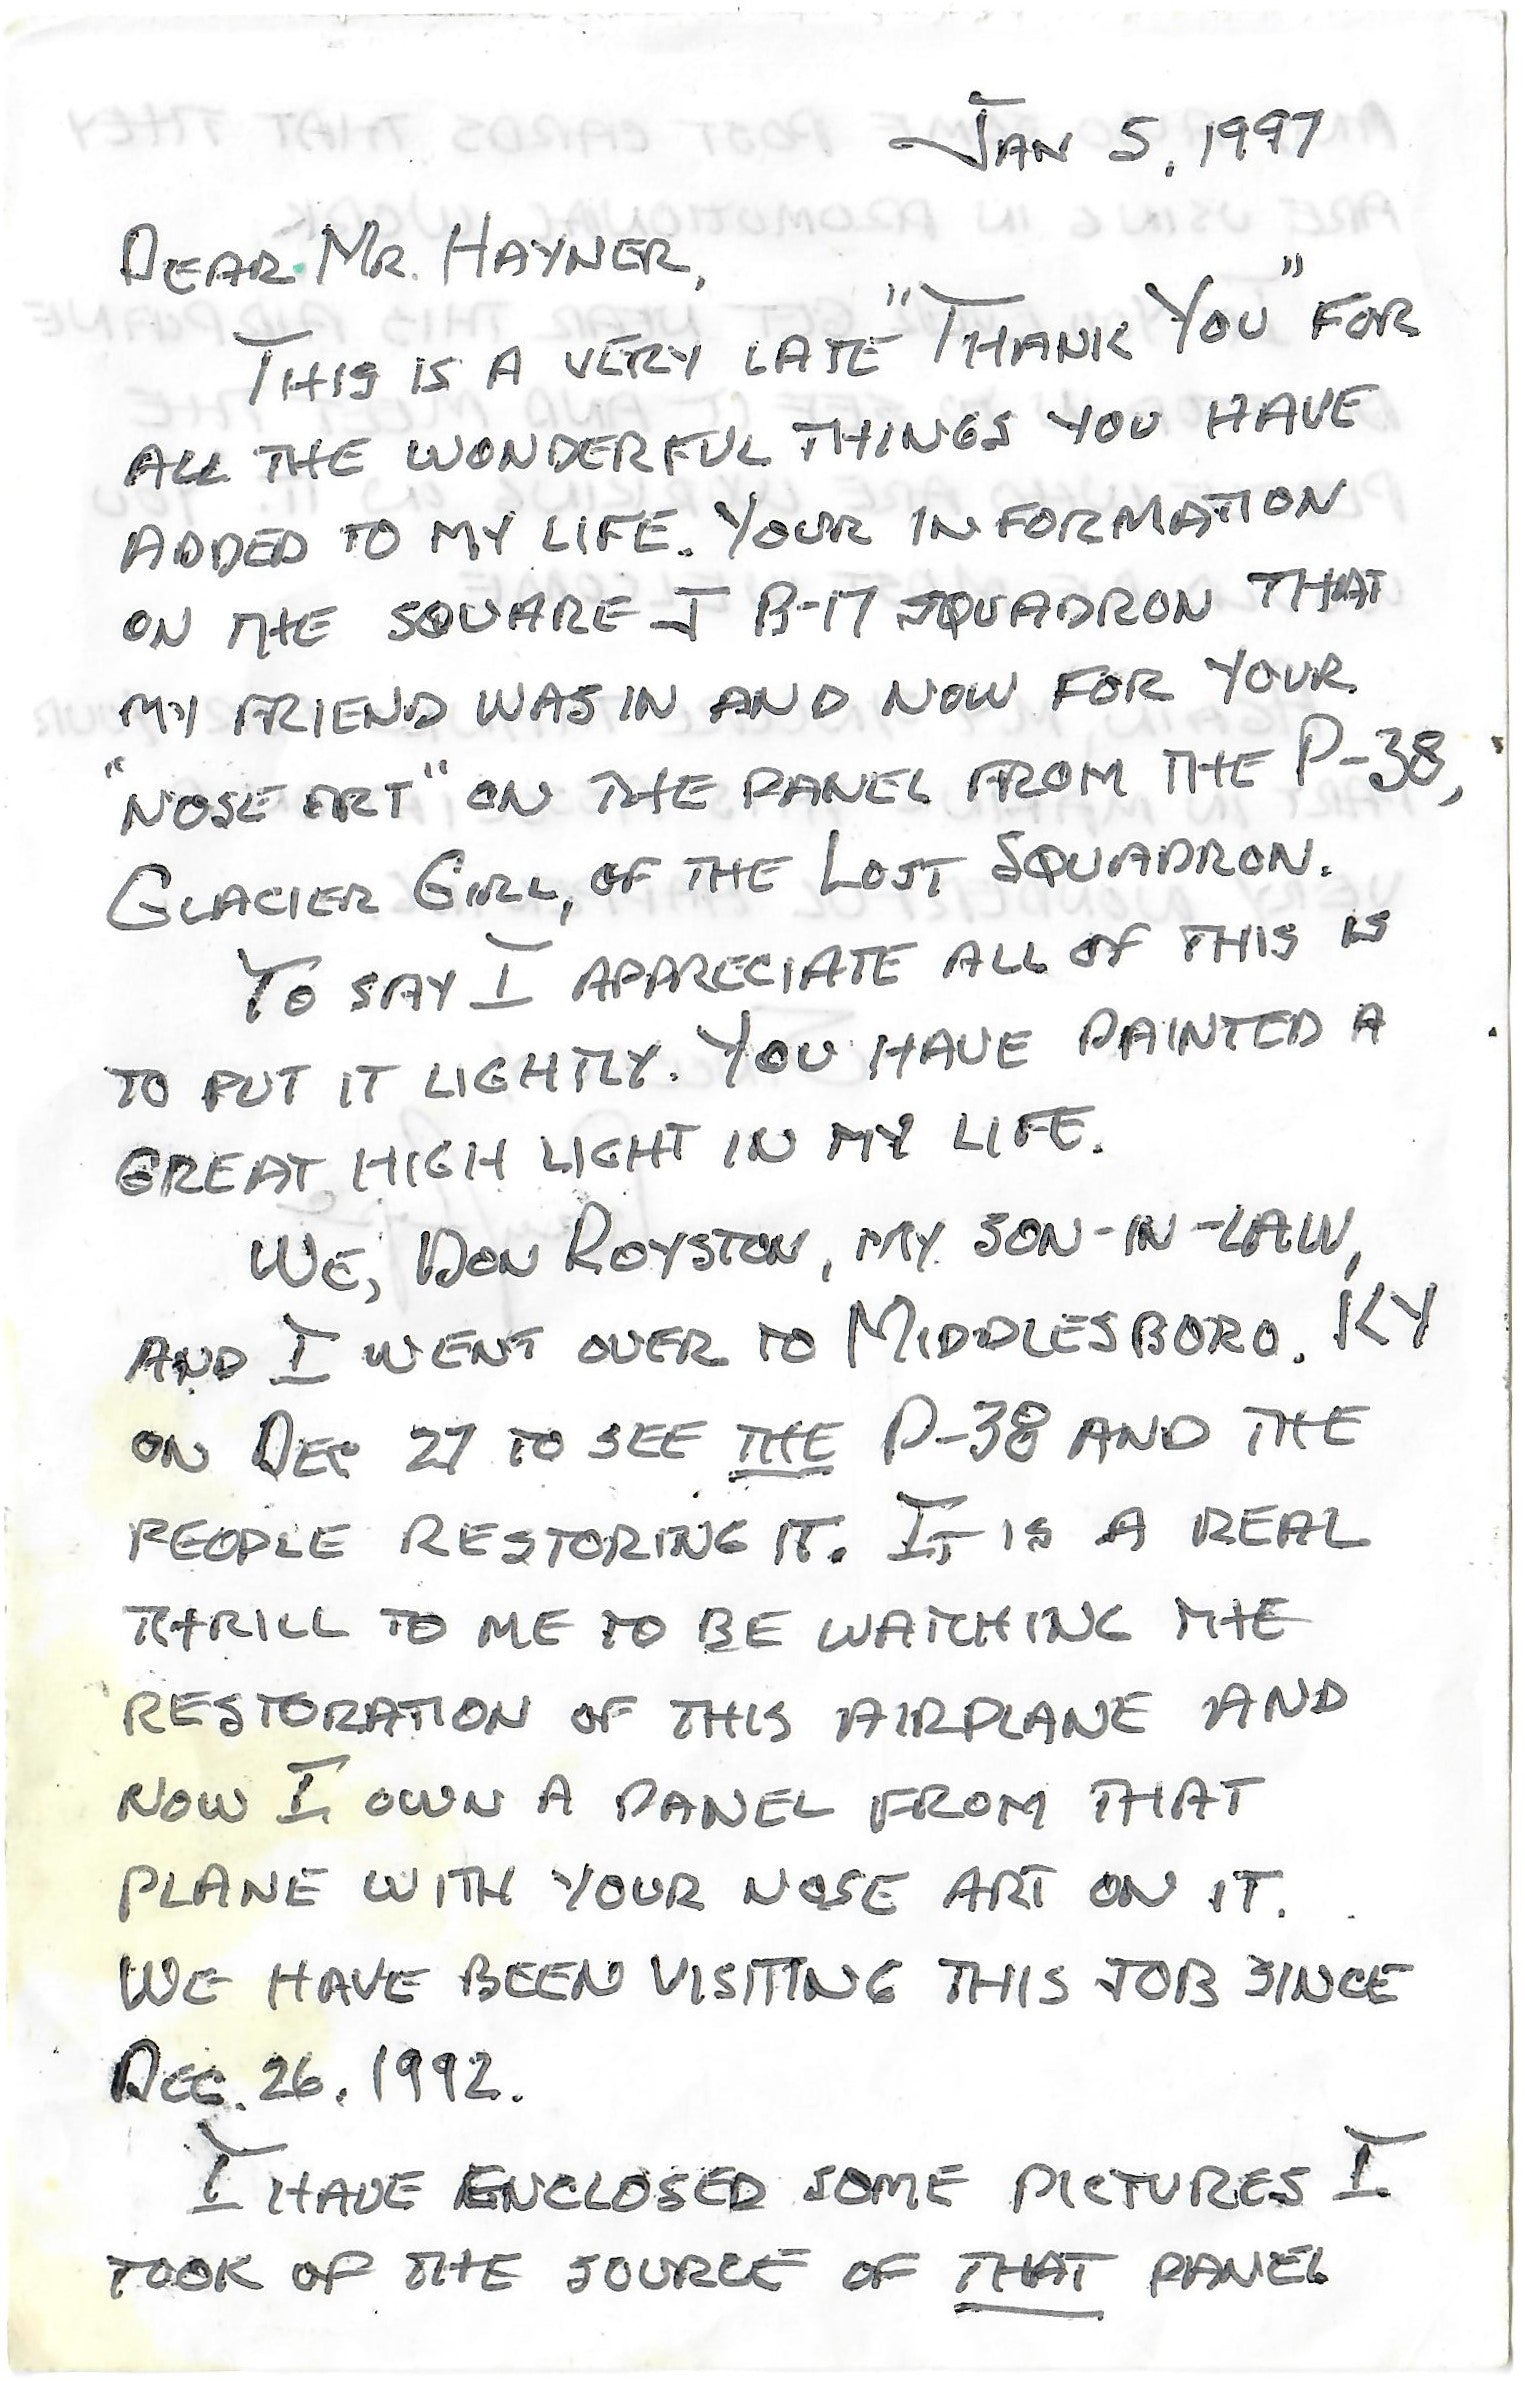 JAN 5, 1997
DEAR MR. HAYNER,
THIS IS A VERY LATE "THANK YOU" FOR
ALL THE WONDERFUL THINGS YOU HAVE
ADDED TO MY LIFE. YOUR INFORMATION
ON THE SQUARE J B-17 SQUADRON THAT
MY FRIEND WAS IN AND NOW FOR YOUR
"NOSE ART" ON THE PANEL FROM THE P-38,
GLACIER GIRL, OF THE LOST SQUADRON.
TO SAY I APPRECIATE ALL OF THIS IS
TO PUT IT LIGHTLY. YOU HAVE PAINTED A
GREAT HIGH LIGHT IN MY LIFE.
WE, DON ROYSTON, MY SON-IN-LAW,
AND I WENT OVER TO MIDDLESBORO. KY
ON DEC 27 TO SEE THE P-38 AND THE
PEOPLE RESTORING IT. IT IS A REAL
THRILL TO ME TO BE WATCHING THE
RESTORATION OF THIS AIRPLANE AND
NOW I OWN A PANEL FROM THAT
PLANE WITH YOUR NOSE ART ON IT.
WE HAVE BEEN VISITING THIS JOB SINCE
DEC. 26, 1992.
I HAVE ENCLOSED SOME PICTURES I
TOOK OF THE SOURCE OF THAT PANEL